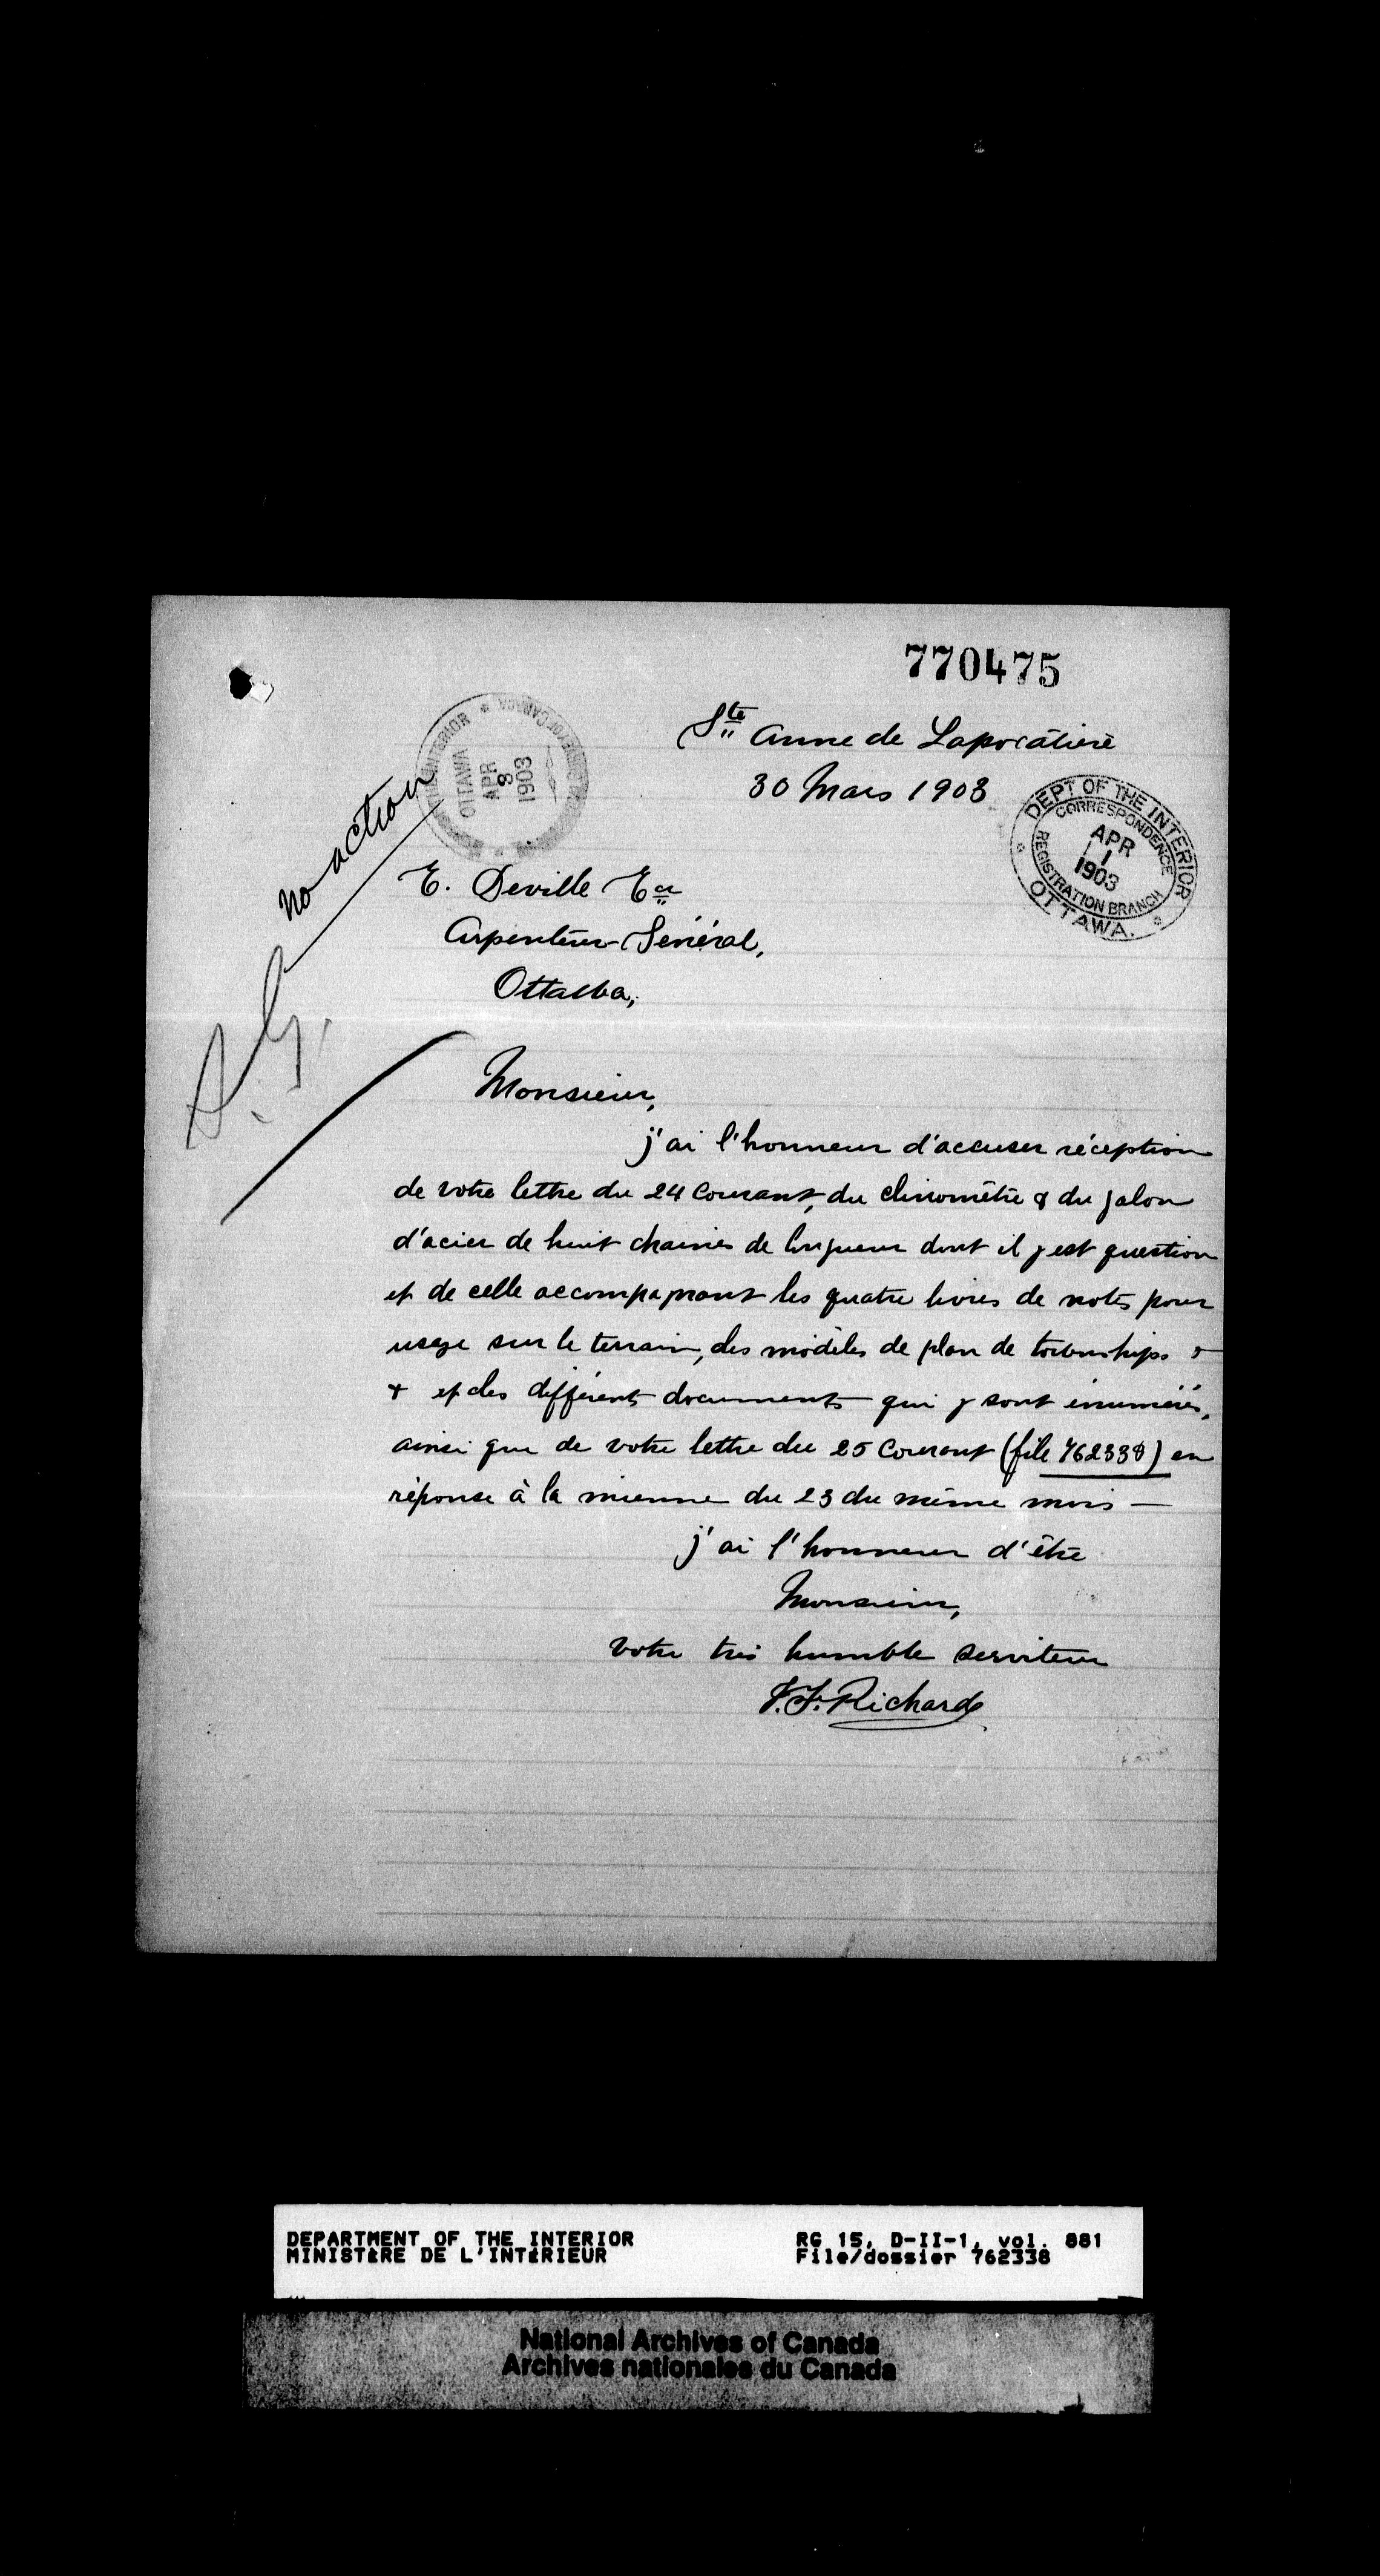 770475
Ste Anne de Lapocatière
30 Mars 1903
INTERIOR
OTTAWA
APR
3
1903
DEPT OF THE INTERIOR
CORRESPONDENCE
APR
1
1903
REGISTRATION BRANCH
OTTAWA.
no action
E. Deville Ecr
Arpenteur-Général,
Ottawa,
Monsieur,
j'ai l'honneur d'accuser réception
de votre lettre du 24 Courant, du clinomètre & du jalon
d'acier de huit chaines de longueur dont il y est question
et de celle accompagnant les quatre livres de notes pour
usage sur le terrain, des modèles de plan de townships &
& et des différents documents qui y sont énumérés,
ainsi que de votre lettre du 25 Courant (file 762338) en
réponse à la mienne du 23 du même mois —
j'ai l'honneur d'être
Monsieur,
votre très humble serviteur
J.F. Richard
DEPARTMENT OF THE INTERIOR
MINISTÈRE DE L'INTÉRIEUR
RG 15, D-II-1, vol. 881
File/dossier 762338
National Archives of Canada
Archives nationales du Canada